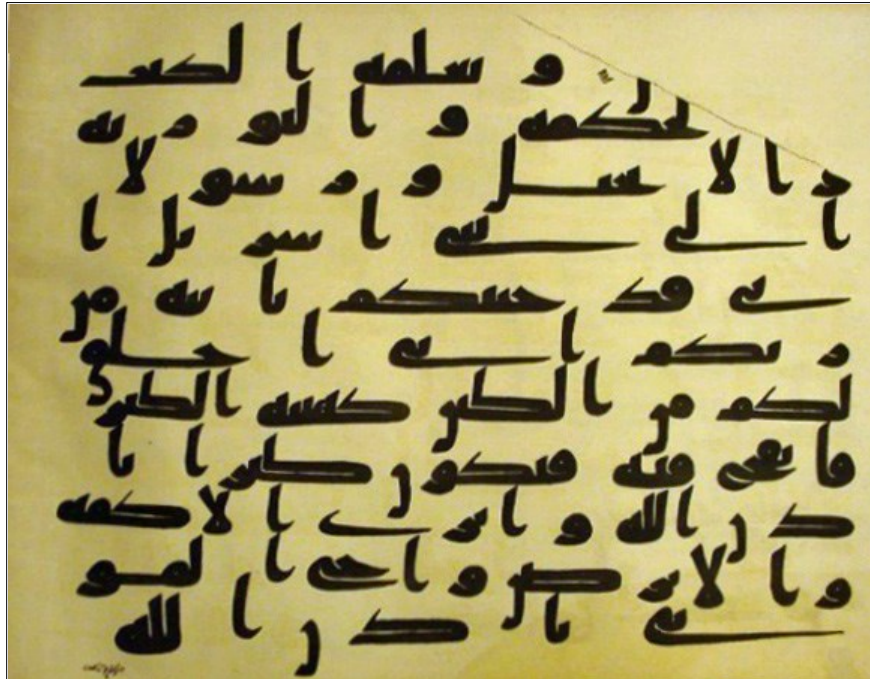 و يعلمه الكتب
لحكمه و التوريه
و الا نجيل و رسولا
الى بنى اسريل ا
نى قد جئتكم بايه من
ربكم انى اخلق
لكم من الطين كهيئه الطير
فانفخ فيه فيكون طيرا با
ذن الله و ابرى الاكمه
و الابرص و احى المو
تى باذن الله